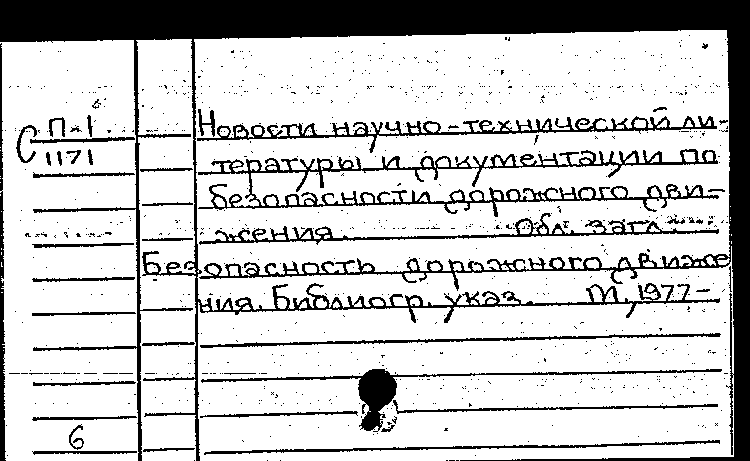 С П-1
1171
Новости научно-технической ли-
тературы и документации по
безопасности дорожного дви-
жения. Обл. загл.
Безопасность дорожного движе
ния. Библиогр. указ. М., 1977-
6